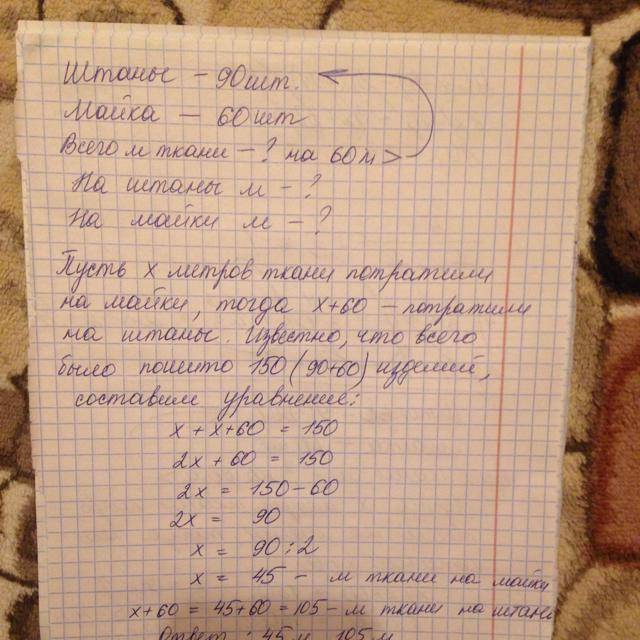 Штаны – 90 шт.
Майка – 60 шт
Всего м ткани – ? на 60 м >
На штаны м – ?
На майки м – ?
Пусть х метров ткани потратили
на майки, тогда х+60 – потратили
на штаны. Известно, что всего
было пошито 150 (90+60) изделий,
составим уравнение:
х + х+60 = 150
2х + 60 = 150
2х = 150 – 60
2х = 90
х = 90 : 2
х = 45 – м ткани на майки
х+60 = 45+60 = 105 – м ткани на штаны
Ответ : 45 м, 105 м